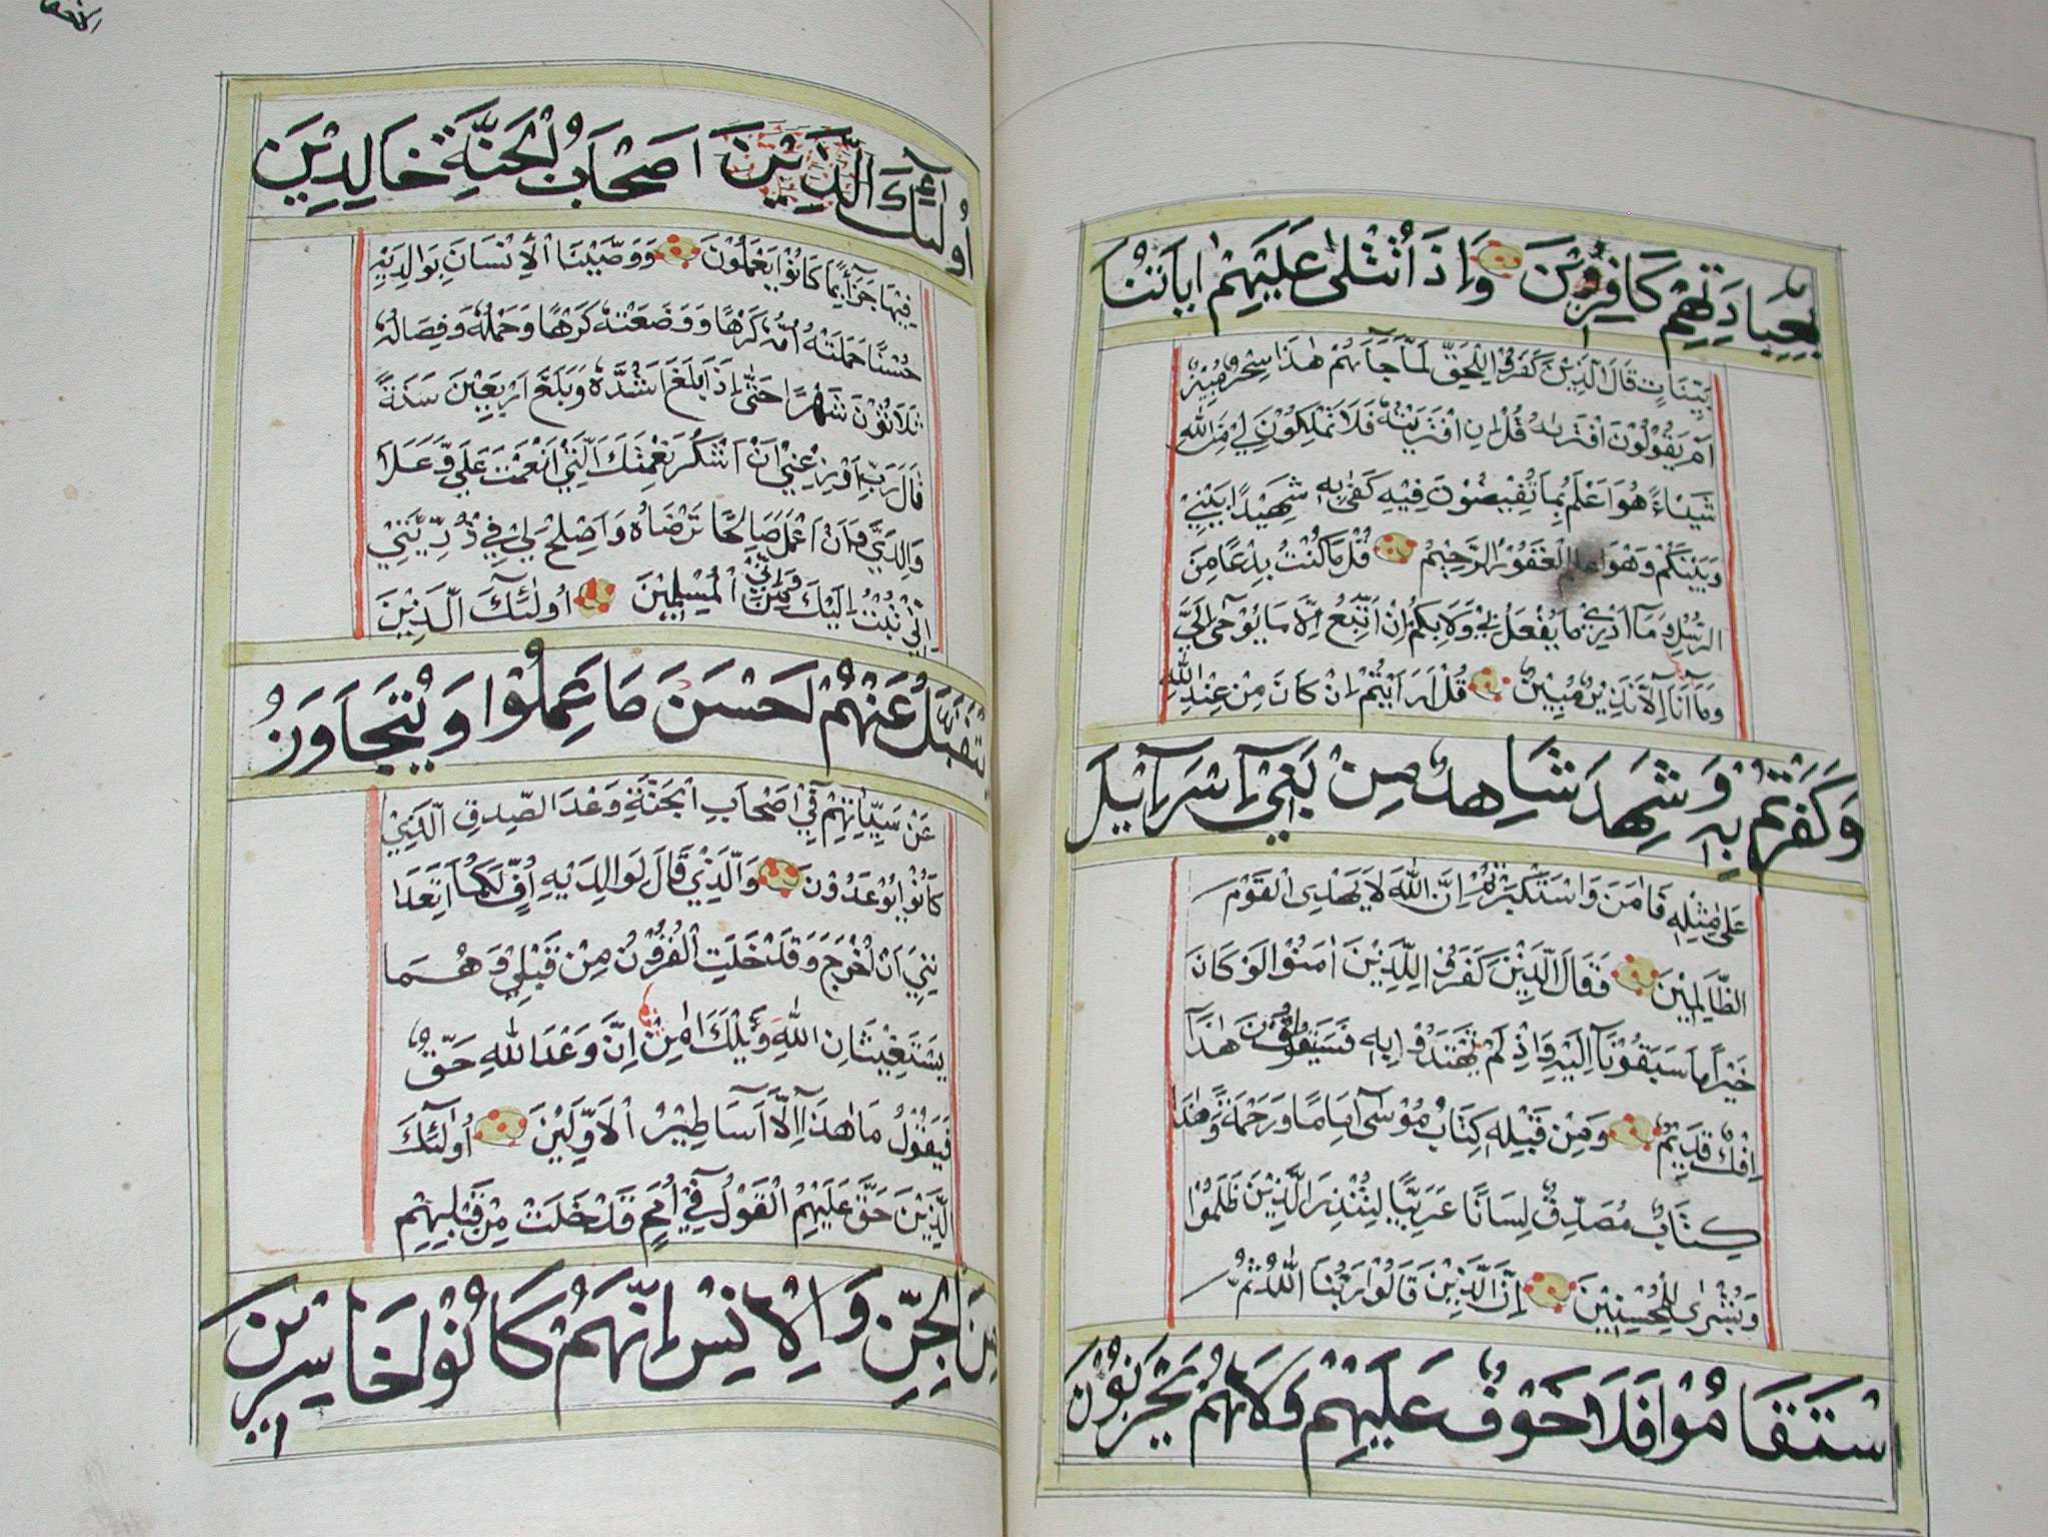 بِعِبَادَتِهِمْ كَافِرِيْنَ وَاِذَا تُتْلٰى عَلَيْهِمْ اٰيَاتُنَا
بَيِّنَاتٍ قَالَ الَّذِيْنَ كَفَرُوْا لِلْحَقِّ لَمَّا جَآءَهُمْ هٰذَا سِحْرٌ مُبِيْنٌ
اَمْ يَقُوْلُوْنَ افْتَرٰىهُ قُلْ اِنِ افْتَرَيْتُهُ فَلَا تَمْلِكُوْنَ لِيْ مِنَ اللّٰهِ
شَيْئًا هُوَ اَعْلَمُ بِمَا تُفِيْضُوْنَ فِيْهِ كَفٰى بِهٖ شَهِيْدًا بَيْنِيْ
وَبَيْنَكُمْ وَهُوَ الْغَفُوْرُ الرَّحِيْمُ قُلْ مَا كُنْتُ بِدْعًا مِنَ
الرُّسُلِ وَمَآ اَدْرِيْ مَا يُفْعَلُ بِيْ وَلَا بِكُمْ اِنْ اَتَّبِعُ اِلَّا مَا يُوْحٰٓى اِلَيَّ
وَمَآ اَنَا اِلَّا نَذِيْرٌ مُبِيْنٌ قُلْ اَرَاَيْتُمْ اِنْ كَانَ مِنْ عِنْدِ اللّٰهِ
وَكَفَرْتُمْ بِهٖ وَشَهِدَ شَاهِدٌ مِنْ بَنِيْٓ اِسْرَآئِيْلَ
عَلٰى مِثْلِهٖ فَاٰمَنَ وَاسْتَكْبَرْتُمْ اِنَّ اللّٰهَ لَا يَهْدِى الْقَوْمَ
الظَّالِمِيْنَ وَقَالَ الَّذِيْنَ كَفَرُوْا لِلَّذِيْنَ اٰمَنُوْا لَوْ كَانَ
خَيْرًا مَا سَبَقُوْنَآ اِلَيْهِ وَاِذْ لَمْ يَهْتَدُوْا بِهٖ فَسَيَقُوْلُوْنَ هٰذَآ
اِفْكٌ قَدِيْمٌ وَمِنْ قَبْلِهٖ كِتَابُ مُوْسٰٓى اِمَامًا وَرَحْمَةً وَهٰذَا
كِتَابٌ مُصَدِّقٌ لِسَانًا عَرَبِيًّا لِيُنْذِرَ الَّذِيْنَ ظَلَمُوْا
وَبُشْرٰى لِلْمُحْسِنِيْنَ اِنَّ الَّذِيْنَ قَالُوْا رَبُّنَا اللّٰهُ ثُمَّ
اسْتَقَامُوْا فَلَا خَوْفٌ عَلَيْهِمْ وَلَا هُمْ يَحْزَنُوْنَ
اُولٰٓئِكَ الَّذِيْنَ اَصْحَابُ الْجَنَّةِ خَالِدِيْنَ
فِيْهَا جَزَآءً بِمَا كَانُوْا يَعْمَلُوْنَ وَوَصَّيْنَا الْاِنْسَانَ بِوَالِدَيْهِ
حُسْنًا حَمَلَتْهُ اُمُّهُ كَرْهًا وَوَضَعَتْهُ كَرْهًا وَحَمْلُهُ وَفِصَالُهُ
ثَلَاثُوْنَ شَهْرًا حَتّٰى اِذَا بَلَغَ اَشُدَّهُ وَبَلَغَ اَرْبَعِيْنَ سَنَةً
قَالَ رَبِّ اَوْزِعْنِيْ اَنْ اَشْكُرَ نِعْمَتَكَ الَّتِيْ اَنْعَمْتَ عَلَيَّ وَعَلٰى
وَالِدَيَّ وَاَنْ اَعْمَلَ صَالِحًا تَرْضَاهُ وَاَصْلِحْ لِيْ فِيْ ذُرِّيَّتِيْ
اِنِّيْ تُبْتُ اِلَيْكَ وَاِنِّيْ مِنَ الْمُسْلِمِيْنَ اُولٰٓئِكَ الَّذِيْنَ
نَتَقَبَّلُ عَنْهُمْ اَحْسَنَ مَا عَمِلُوْا وَنَتَجَاوَزُ
عَنْ سَيِّاٰتِهِمْ فِيْٓ اَصْحَابِ الْجَنَّةِ وَعْدَ الصِّدْقِ الَّذِيْ
كَانُوْا يُوْعَدُوْنَ وَالَّذِيْ قَالَ لِوَالِدَيْهِ اُفٍّ لَكُمَآ اَتَعِدَا
نِنِيْٓ اَنْ اُخْرَجَ وَقَدْ خَلَتِ الْقُرُوْنُ مِنْ قَبْلِيْ وَهُمَا
يَسْتَغِيْثَانِ اللّٰهَ وَيْلَكَ اٰمِنْ اِنَّ وَعْدَ اللّٰهِ حَقٌّ
فَيَقُوْلُ مَا هٰذَآ اِلَّآ اَسَاطِيْرُ الْاَوَّلِيْنَ اُولٰٓئِكَ
الَّذِيْنَ حَقَّ عَلَيْهِمُ الْقَوْلُ فِيْٓ اُمَمٍ قَدْ خَلَتْ مِنْ قَبْلِهِمْ
مِنَ الْجِنِّ وَالْاِنْسِ اِنَّهُمْ كَانُوْا خَاسِرِيْنَ